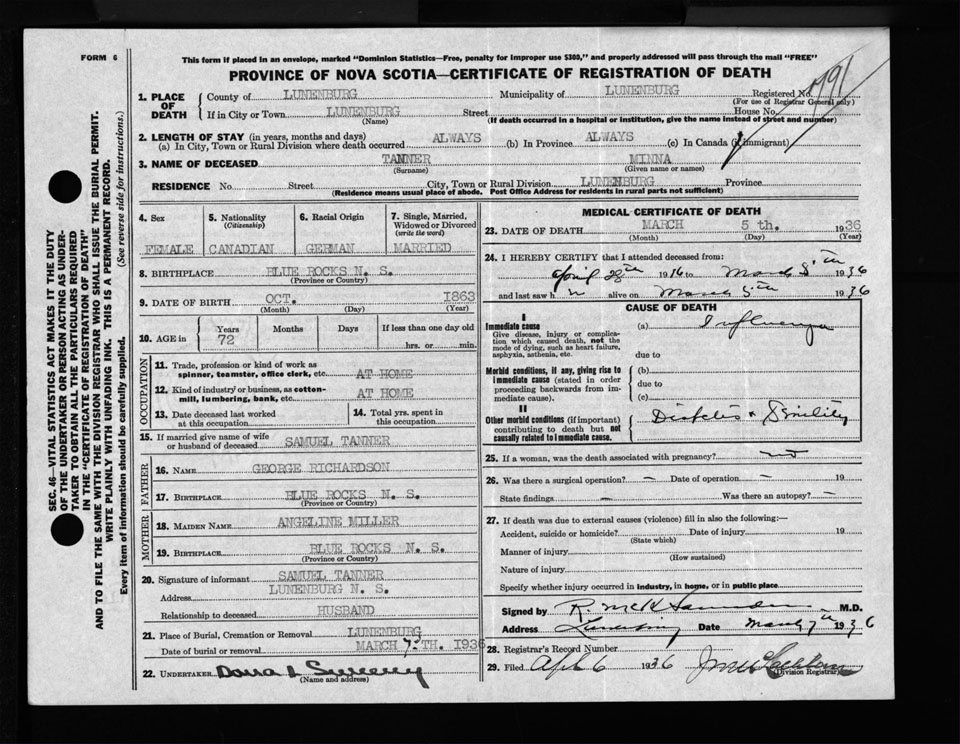 FORM 6
This form if placed in an envelope, marked "Dominion Statistics—Free, penalty for improper use $300," and properly addressed will pass through the mail "FREE"
PROVINCE OF NOVA SCOTIA—CERTIFICATE OF REGISTRATION OF DEATH
1. PLACE OF DEATH
County of LUNENBURG Municipality of LUNENBURG Registered No.
(For use of Registrar General only)
If in City or Town LUNENBURG Street House No.
(Name) (If death occurred in a hospital or institution, give the name instead of street and number)
2. LENGTH OF STAY (in years, months and days)
(a) In City, Town or Rural Division where death occurred ALWAYS (b) In Province ALWAYS (c) In Canada (if immigrant)
3. NAME OF DECEASED TANNER MINNA
(Surname) (Given name or names)
RESIDENCE No. Street City, Town or Rural Division LUNENBURG Province
(Residence means usual place of abode. Post Office Address for residents in rural parts not sufficient)
4. Sex 5. Nationality (Citizenship) 6. Racial Origin 7. Single, Married, Widowed or Divorced (write the word)
FEMALE CANADIAN GERMAN MARRIED
8. BIRTHPLACE BLUE ROCKS N. S.
(Province or Country)
9. DATE OF BIRTH OCT. 1863
(Month) (Day) (Year)
10. AGE in Years Months Days If less than one day old
72 hrs. or min.
OCCUPATION
11. Trade, profession or kind of work as spinner, teamster, office clerk, etc. AT HOME
12. Kind of industry or business, as cotton-mill, lumbering, bank, etc. AT HOME
13. Date deceased last worked at this occupation
14. Total yrs. spent in this occupation
15. If married give name of wife or husband of deceased SAMUEL TANNER
FATHER
16. NAME GEORGE RICHARDSON
17. BIRTHPLACE BLUE ROCKS N. S.
(Province or Country)
MOTHER
18. MAIDEN NAME ANGELINE MILLER
19. BIRTHPLACE BLUE ROCKS N. S.
(Province or Country)
20. Signature of informant SAMUEL TANNER
Address LUNENBURG N. S.
Relationship to deceased HUSBAND
21. Place of Burial, Cremation or Removal LUNENBURG
Date of burial or removal MARCH 7-TH. 1936
22. UNDERTAKER Sweeny
(Name and address)
MEDICAL CERTIFICATE OF DEATH
23. DATE OF DEATH MARCH 5 th. 1936
(Month) (Day) (Year)
24. I HEREBY CERTIFY that I attended deceased from:
April 28th 1916 to March 5th 1936
and last saw h alive on March 5th 1936
CAUSE OF DEATH
I
Immediate cause
Give disease, injury or complication which caused death, not the mode of dying, such as heart failure, asphyxia, asthenia, etc.
(a) Influenza
due to
Morbid conditions, if any, giving rise to immediate cause (stated in order proceeding backwards from immediate cause).
(b)
due to
(c)
II
Other morbid conditions (if important) contributing to death but not causally related to immediate cause.
Diabetes & Senility
25. If a woman, was the death associated with pregnancy? no
26. Was there a surgical operation? — Date of operation — 19
State findings — Was there an autopsy? —
27. If death was due to external causes (violence) fill in also the following:—
Accident, suicide or homicide? Date of injury 19
(State which)
Manner of injury
(How sustained)
Nature of injury
Specify whether injury occurred in industry, in home, or in public place
Signed by M.D.
Address Lunenburg Date March 7th 1936
28. Registrar's Record Number
29. Filed Apl 6 1936
(Division Registrar)
SEC. 46—VITAL STATISTICS ACT MAKES IT THE DUTY
OF THE UNDERTAKER OR PERSON ACTING AS UNDER-
TAKER TO OBTAIN ALL THE PARTICULARS REQUIRED
IN THE "CERTIFICATE OF REGISTRATION OF DEATH"
AND TO FILE THE SAME WITH THE DIVISION REGISTRAR WHO SHALL ISSUE THE BURIAL PERMIT.
WRITE PLAINLY WITH UNFADING INK. THIS IS A PERMANENT RECORD.
Every item of information should be carefully supplied. (See reverse side for instructions.)